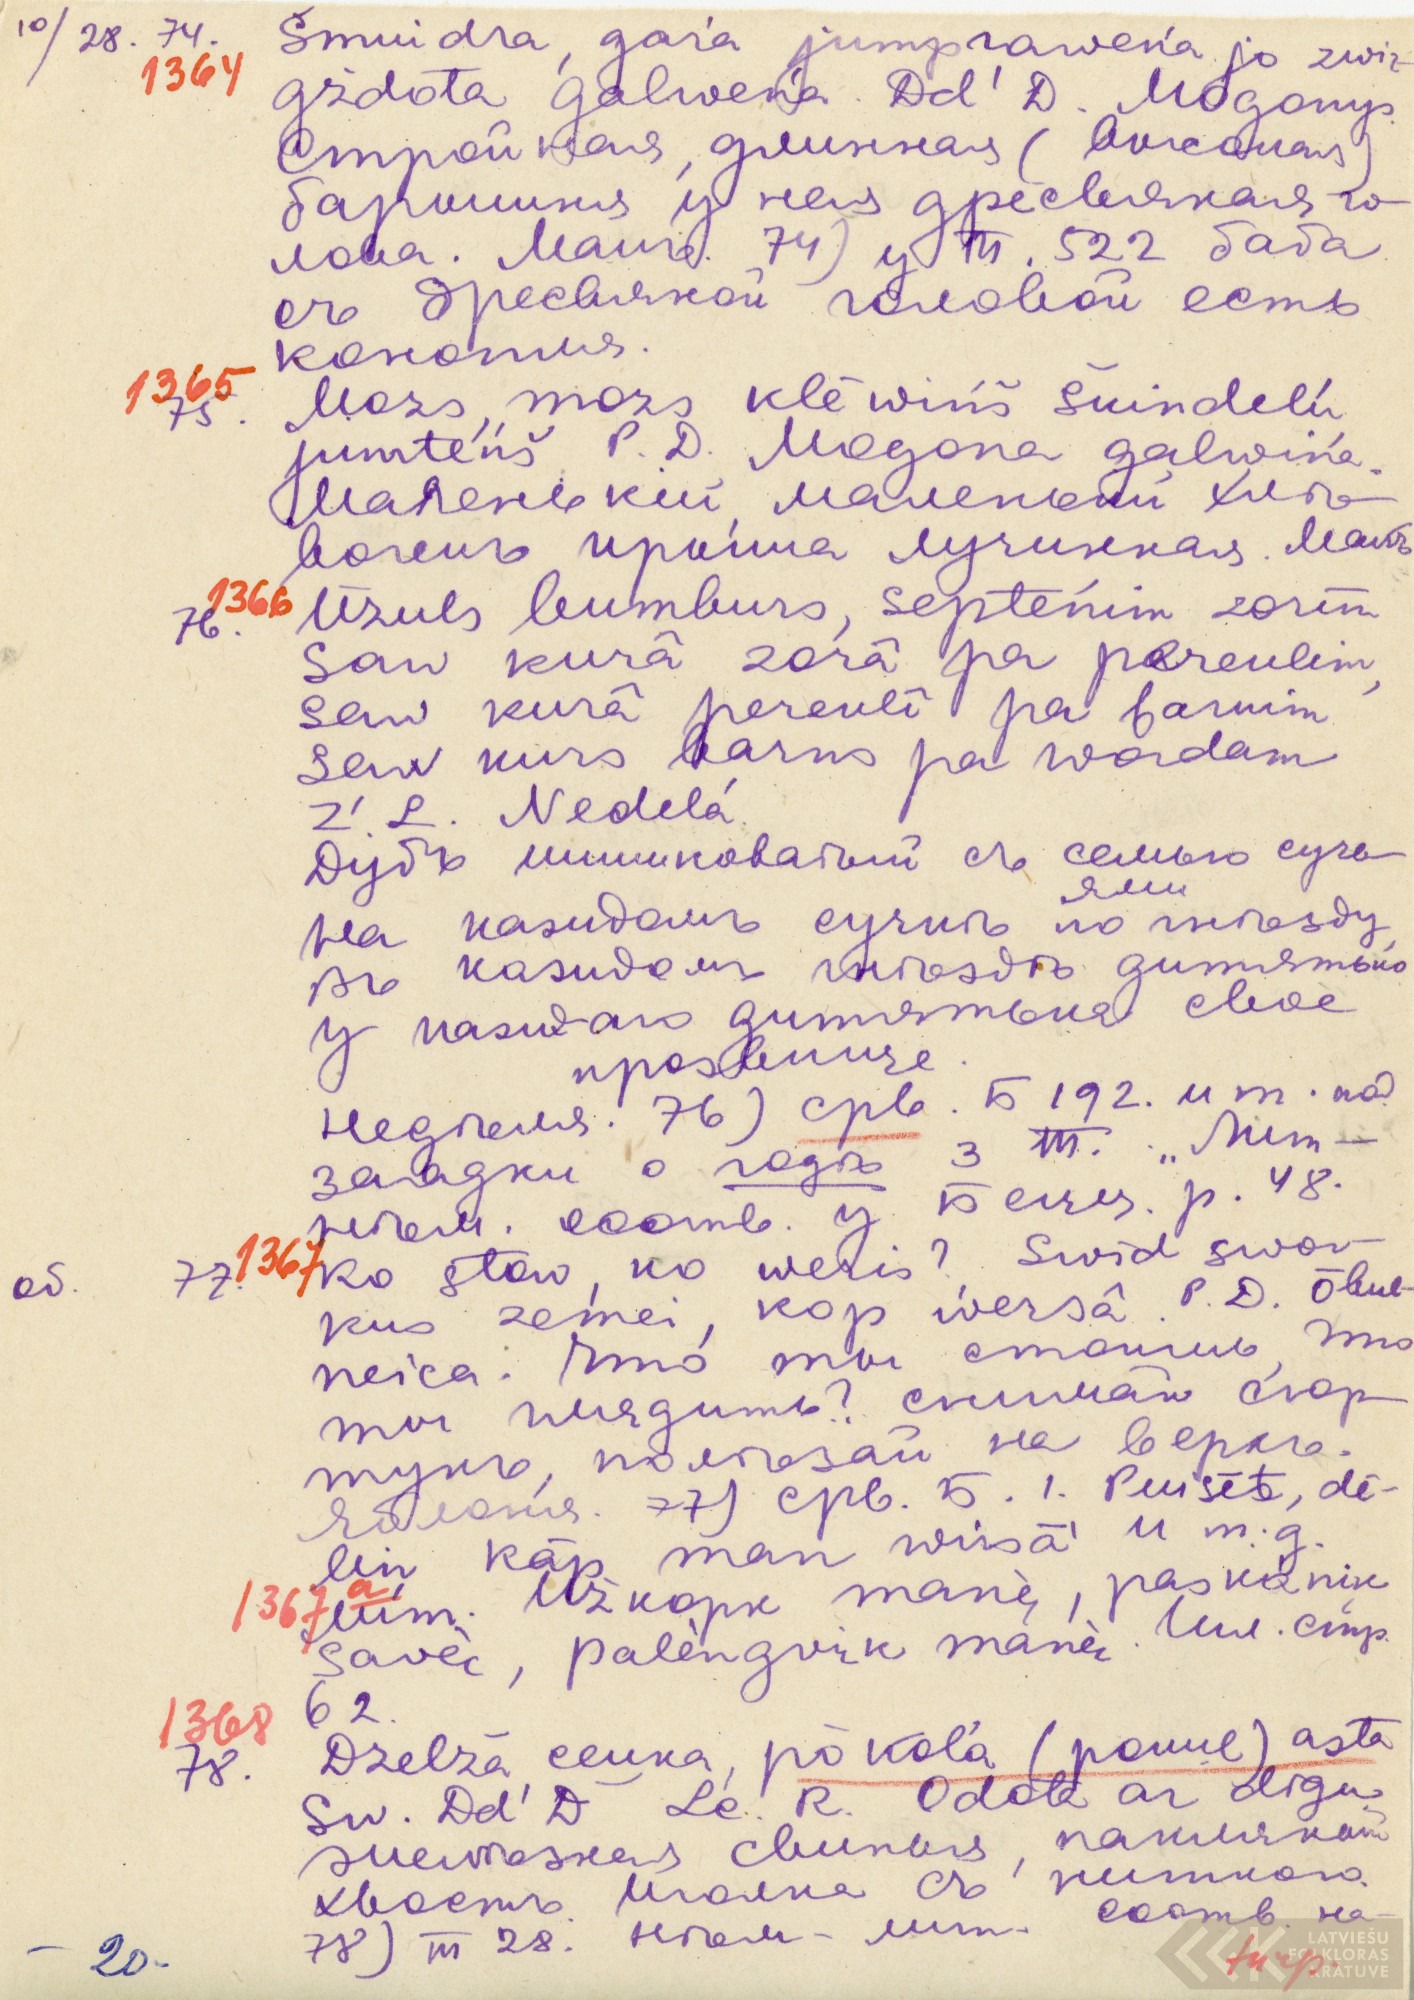 10/28. 74. Šmuidra, gaŕa jumpraweńa jo zwir-
1364 gždota galweńa. Dd' D. Mogonys.
Стройная, длинная (высокая)
барышня у нея дресвяная го-
лова. Макъ. 74) у Ш. 522 баба
съ дресвяной головой есть
конопля.
1365
75. Mozs, mozs klēwińš šuindelú
jumteńš P. D. Mogona galwińa.
Маленькій, маленькій хлѣ-
вочекъ крыша лучинная. Макъ
1366
76. Ūzuls bumburs, septeńim zorim
saw kurâ zorâ pa pereulim,
saw kurâ pereulī pa barnim
saw kurs barns pa wordam
Z'. L. Nedelá.
Дубъ шишковатый съ семью сучь-
ями
на каждомъ сучкѣ по гнѣзду,
въ каждомъ гнѣздѣ дитятько
у каждаго дитятька свое
прозвище.
Недѣля. 76) срв. Б 192. и т. под
загадки о годѣ З Ш. „Лит-
нѣм. соотв. у Бецц. р. 48.
об. 77. 1367 Ko staw, ko weris? Swid swor-
kus zemei, kop wersâ. P. D. Ōbul-
neica. Что ты стоишь, что
ты глядишь? скимай сюр-
тукъ, полѣзай на верхъ.
Яблоня. 77) срв. Б. 1. Puisēt, dē-
liń kāp man wirsā' и т. д.
1367 a Лит. Užkopk manę, paskanįk
savę, palengvįk manę. Ил. стр.
62.
1368
78. Dzelzā ceuka, pōkolá (pouul) asta
Sw. Dd' D Lé. R. Odota ar digu.
желѣзная свинья, пакляной
хвостъ. Иголка съ ниткою.
78) Ш 28. Нѣм-лит. соотв. на-
- 20- turp.
LATVIEŠU
FOLKLORAS
KRĀTUVE